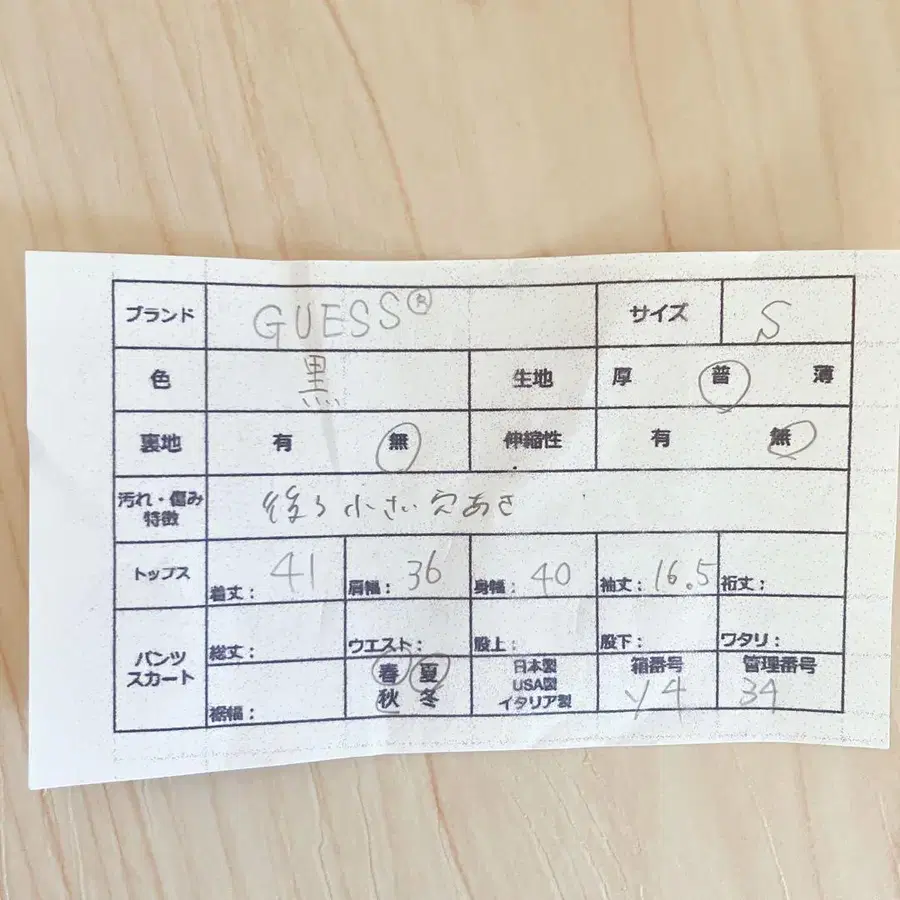 ブランド GUESS® サイズ S
色 黒 生地 厚 普 薄
裏地 有 無 伸縮性 有 無
汚れ・傷み 後ろ小さい穴あき
特徴
トップス 着丈： 41 肩幅： 36 身幅： 40 袖丈： 16.5 裄丈：
パンツ 総丈： ウエスト： 股上： 股下： ワタリ：
スカート 裾幅：
春 夏
秋 冬
日本製
USA製
イタリア製
箱番号
Y4
管理番号
34